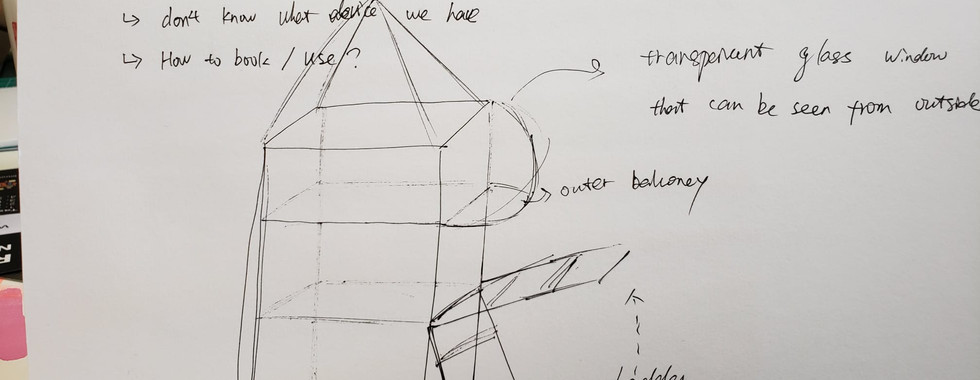 ↳ don't know what device we have
↳ How to book / use ?
transparent glass window
that can be seen from outside
outer balconey